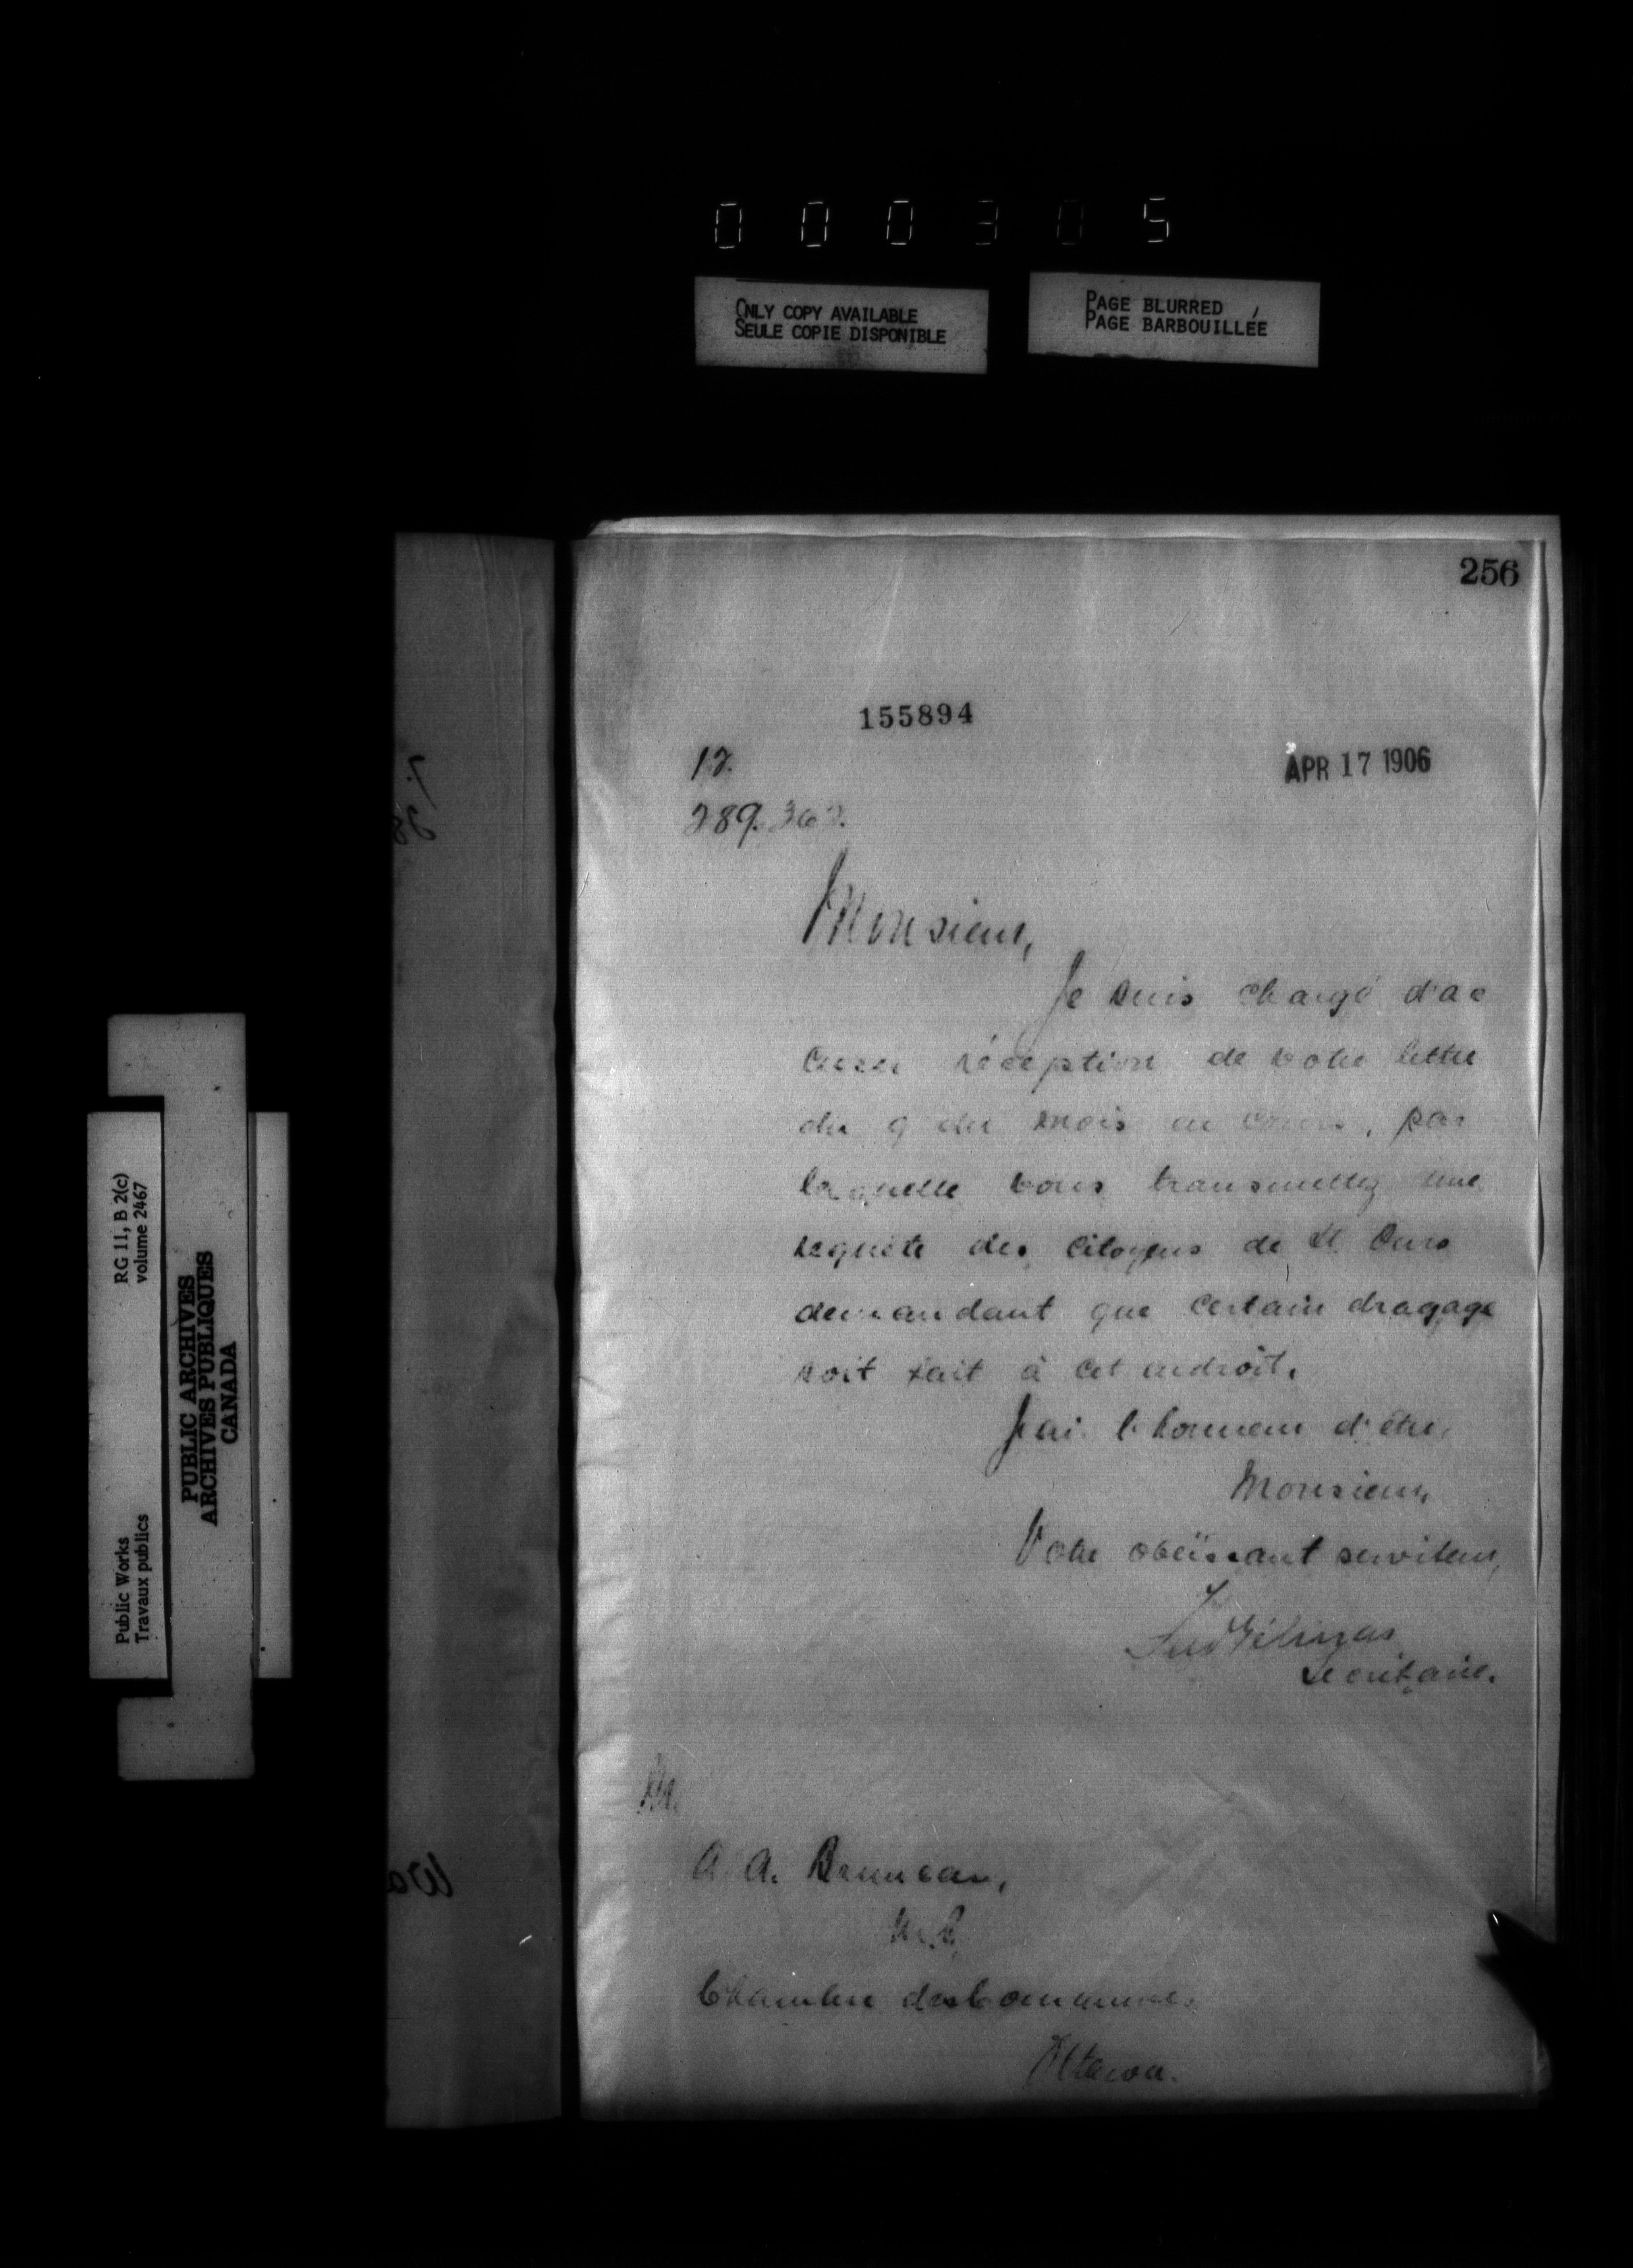 000305
ONLY COPY AVAILABLE
SEULE COPIE DISPONIBLE
PAGE BLURRED
PAGE BARBOUILLÉE
256
155894
APR 17 1906
12.
289.362.
Monsieur,
Je suis chargé d'ac
cuser réception de votre lettre
du 9 du mois en cours, par
laquelle vous transmettez une
requête des citoyens de St Ours
demandant que certain dragage
soit fait à cet endroit.
J'ai l'honneur d'être,
Monsieur,
Votre obéissant serviteur,
Fred Gélinas
Secrétaire.
A. A. Bruneau,
M.P.
Chambre des Communes.
Ottawa.
RG 11, B 2(c)
volume 2467
PUBLIC ARCHIVES
ARCHIVES PUBLIQUES
CANADA
Public Works
Travaux publics